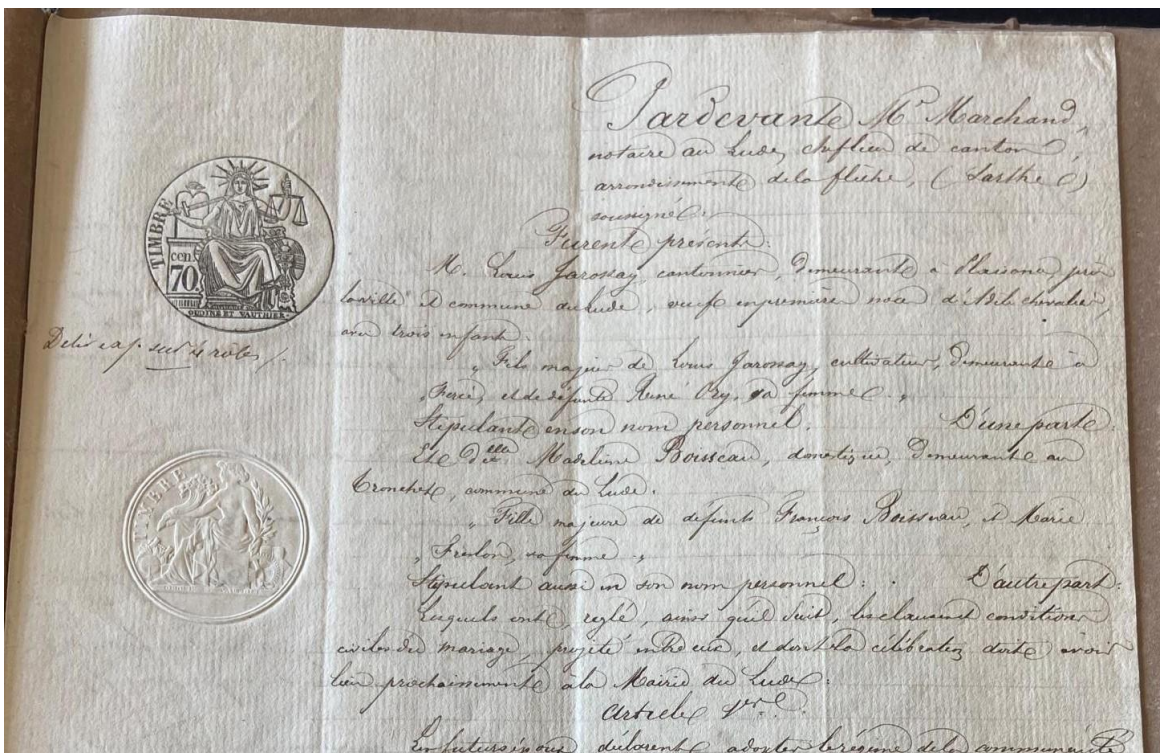 Pardevant Me Marchand,
notaire au Lude, cheflieu de canton,
arrondissement de la flèche, (Sarthe)
soussigné.
Furent présents:
M. Louis Jarossay, cantonnier, demeurant à Plaisance, près
la ville et commune du Lude, veuf en première noce d'Adèle chevalier,
avec trois enfants.
„ Fils majeur de Louis Jarossay, cultivateur, demeurant à
„ Forcé, et de défunte René Ory, sa femme. „
Stipulant en son nom personnel. D'une part.
Et Delle Madeleine Boisseau, domestique, demeurant au
Tronchet, commune du Lude.
„ Fille majeure de défunts François Boisseau, et Marie
„ Freslon, sa femme. „
Stipulant aussi en son nom personnel: D'autre part:
Lesquels ont, reglé, ainsi qu'il suit, les clauses et conditions
civiles du mariage, projeté entre eux, et dont la célébration doit avoir
lieu prochainement à la Mairie du Lude:
Article 1er.
Les futurs époux déclarent adopter le régime de la communauté
TIMBRE
cen
70
OUDINE ET VAUTHIER
sur 4 rôles /.
TIMBRE